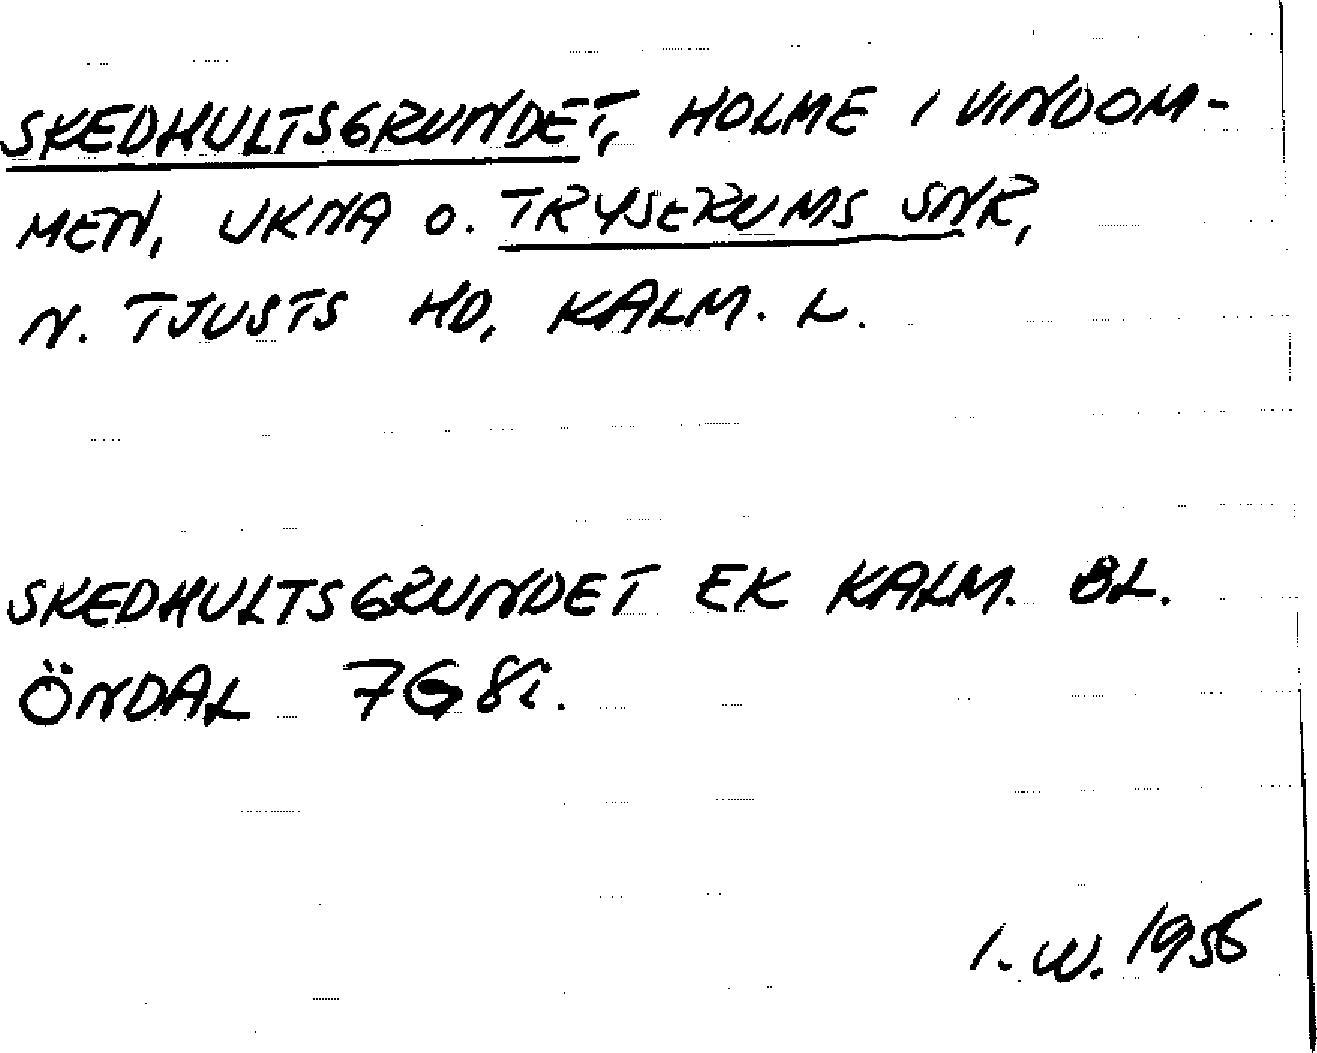 SKEDHULTSGRUNDET, HOLME I VINDOM-
MEN, UKNA O. TRYSERUMS SNR,
N. TJUSTS HD, KALM. L.
SKEDHULTSGRUNDET EK KALM. BL.
ÖNDAL 7G8i.
I. W. 1956